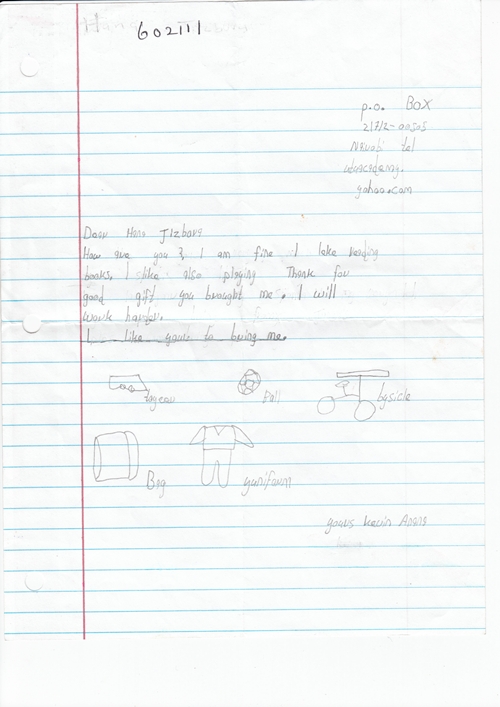 602111
p.o. Box
21712-00505
Nairobi tel
yahoo.com
Dear Hero
How are you ?, I am fine I like reading
books. I like also playing Thank for
good gift you brought me. I will
work harder.
I like your to bring me.
Ball
bysicle
Bag
yunifourm
yours kevin